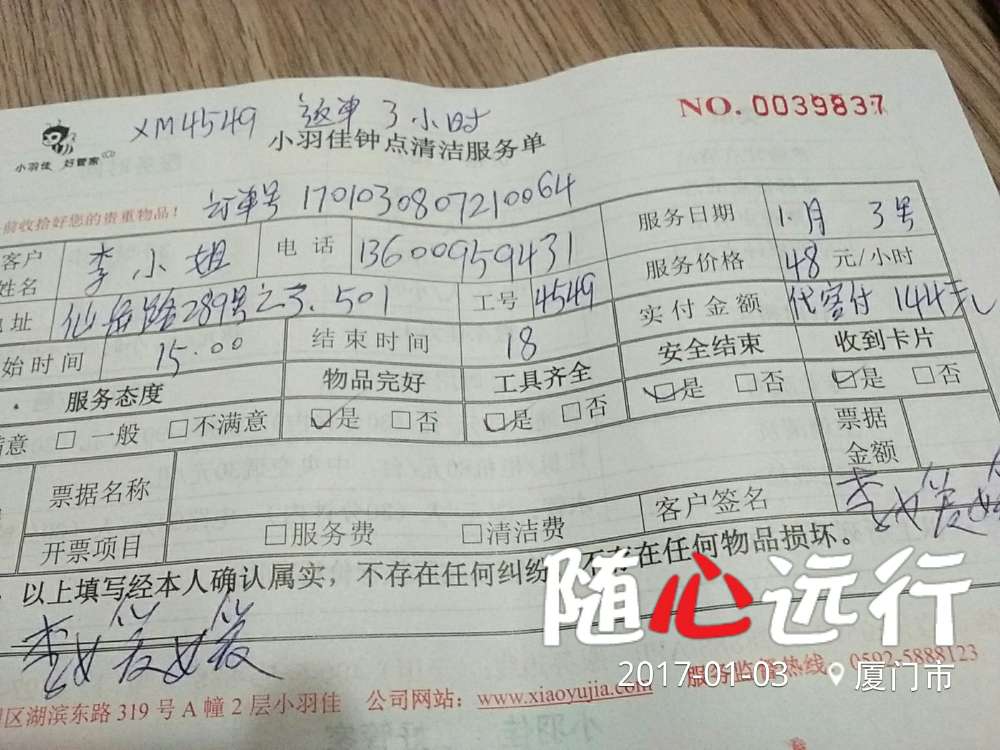 XM4549 返单 3小时 NO.0039837
小羽佳 好管家 小羽佳钟点清洁服务单
前收拾好您的贵重物品! 订单号 1701030807210064
客户姓名 李小姐 电话 13600959431 服务日期 1月 3号
地址 仙岳路289号之3.501 工号 4549 服务价格 48 元/小时
实付金额 代客付 144元
始时间 15.00 结束时间 18 安全结束 收到卡片
服务态度 物品完好 工具齐全 ☑是 □否 ☑是 □否
满意 □一般 □不满意 ☑是 □否 ☑是 □否 票据金额
票据名称
开票项目 □服务费 □清洁费 客户签名
以上填写经本人确认属实，不存在任何纠纷 不存在任何物品损坏。
随心远行
2017-01-03 厦门市
服务监督热线 0592-5888123
区湖滨东路319号A幢2层小羽佳 公司网站：www.xiaoyujia.com